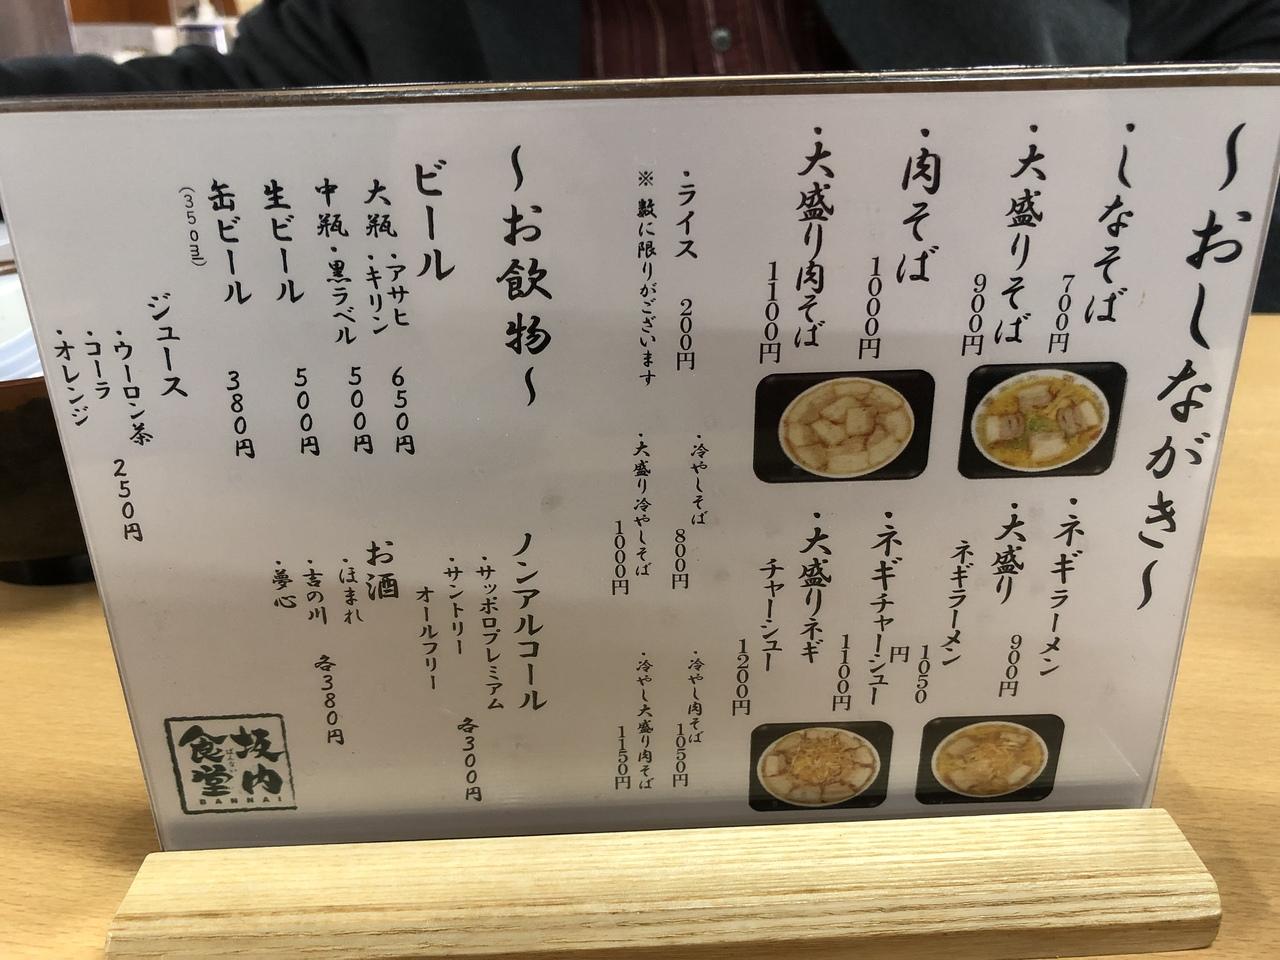 ～おしながき～
・しなそば
700円
・大盛りそば
900円
・肉そば
1000円
・大盛り肉そば
1100円
・ネギラーメン
900円
・大盛り
ネギラーメン
1050
円
・ネギチャーシュー
1100円
・大盛りネギ
チャーシュー
1200円
・ライス 200円
※ 数に限りがございます
・冷やしそば
800円
・大盛り冷やしそば
1000円
・冷やし肉そば
1050円
・冷やし大盛り肉そば
1150円
～お飲物～
ビール
大瓶・アサヒ 650円
・キリン
中瓶・黒ラベル 500円
生ビール 500円
缶ビール 380円
(350ml)
ジュース
・ウーロン茶 250円
・コーラ
・オレンジ
ノンアルコール
・サッポロプレミアム
・サントリー
オールフリー
各300円
お酒
・ほまれ
・吉の川
・夢心
各380円
坂内
食堂
ばんない
BANNAI